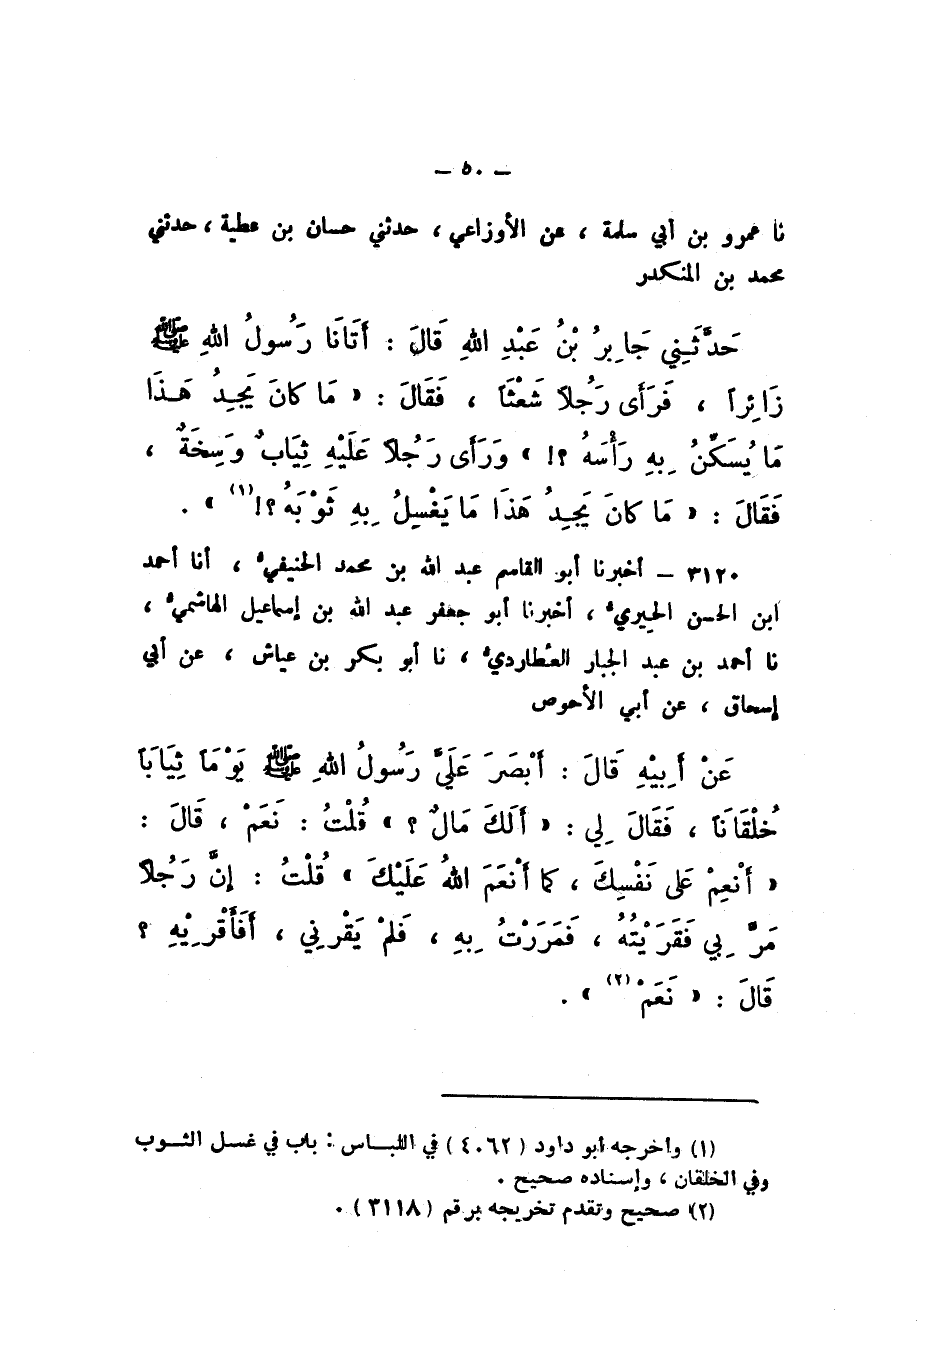 ـ ٥٠ ـ
نا عمرو بن أبي سلمة ، عن الأوزاعي ، حدثني حسان بن عطية ، حدثني
محمد بن المنكدر
حَدَّثَنِي جَابِرُ بْنُ عَبْدِ اللهِ قَالَ : أَتَانَا رَسُولُ اللهِ ﷺ
زَائِراً ، فَرَأَى رَجُلاً شَعْثَاً ، فَقَالَ : « مَا كَانَ يَجِدُ هَـذَا
مَا يُسَكِّنُ بِهِ رَأْسَهُ ؟! » وَرَأَى رَجُلاً عَلَيْهِ ثِيَابٌ وَسِخَةٌ ،
فَقَالَ : « مَا كَانَ يَجِدُ هَذَا مَا يَغْسِلُ بِهِ ثَوْبَهُ ؟!(١) » .
٣١٢٠ – أخبرنا أبو القاسم عبد الله بن محمد الحنيفيُّ ، أنا أحمد
ابن الحسن الحِيريُّ ، أخبرنا أبو جعفر عبد الله بن إسماعيل الهاشميُّ ،
نا أحمد بن عبد الجبار العُطارديُّ ، نا أبو بكر بن عياش ، عن أبي
إسحاق ، عن أبي الأحوص
عَنْ أَبِيْهِ قَالَ : أَبْصَرَ عَلَيَّ رَسُولُ اللهِ ﷺ يَوْمَاً ثِيَابَاً
خُلْقَانَاً ، فَقَالَ لِي : « أَلَكَ مَالٌ ؟ » قُلْتُ : نَعَمْ ، قَالَ :
« أَنْعِمْ عَلَى نَفْسِكَ ، كَمَا أَنْعَمَ اللهُ عَلَيْكَ » قُلْتُ : إِنَّ رَجُلاً
مَرَّ بِي فَقَرَيْتُهُ ، فَمَرَرْتُ بِهِ ، فَلَمْ يَقْرِنِي ، أَفَأَقْرِيْهِ ؟
قَالَ : « نَعَمْ(٢) » .
(١) وأخرجه أبو داود ( ٤٠٦٢ ) في اللبـاس : باب في غسل الثـوب
وفي الخلقان ، وإسناده صحيح .
(٢) صحيح وتقدم تخريجه برقم ( ٣١١٨ ) .